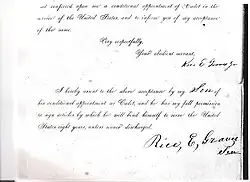 est conferred upon me a conditional appointment of Cadet in the
service of the United States, and to inform you of my acceptance
of the same.
Very respectfully,
Your obedient servant,
Rice E Graves Jr
I hereby assent to the above acceptance by my Son of
his conditional appointment as Cadet, and he has my full permission
to sign articles by which he will bind himself to serve the United
States eight years, unless sooner discharged.
Rice, E, Graves
Sen